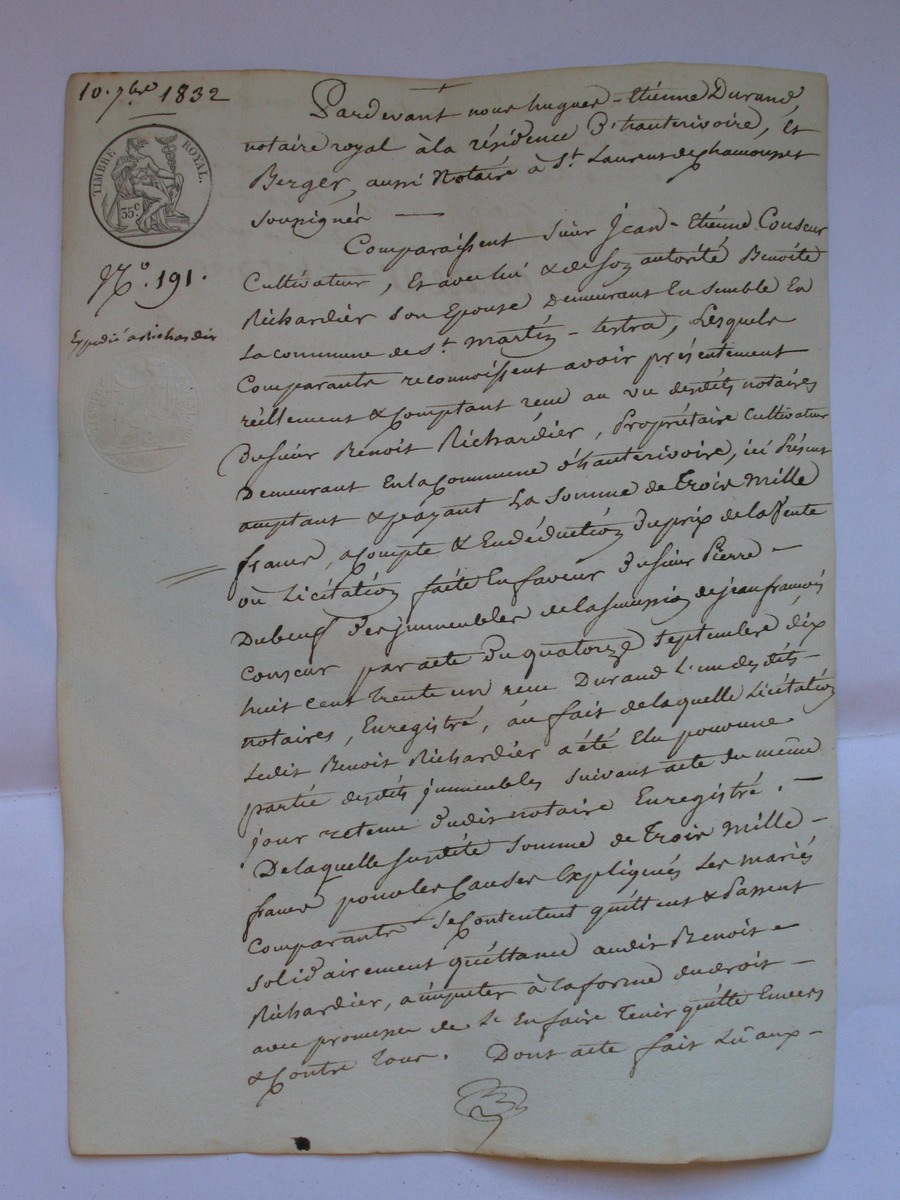 10. 7bre 1832
TIMBRE ROYAL.
35 c.
N.o 191.
Expédié a Richardier
Pardevant nous hugues-Etiénne Durand,
notaire royal à la résidence D'hauterivoire, Et
Berger, aussi Notaire à St. Laurent de Chamousset
soussignés —
Comparaissent Sieur Jean-Etiénne Couseur
Cultivateur, Et avec lui & de son autorité Benoite
Richardier Son Epouse Demeurant Ensemble En
La commune de St. martin-lestra, Lesquels
Comparants reconnoissent avoir présentement
réellement & Comptant recu au vu desdits notaires
Du sieur Benoit Richardier, Propriétaire Cultivateur
Demeurant En la Commune d'hauterivoire, ici Présent
acceptant & payant La Somme de Trois Mille
francs, acompte & En déduction Du prix de la Vente
ou Licitation faite En faveur Du sieur Pierre —
Dubeuf Des jmmeubles de la succession de jean francois
Couseur par acte Du quatorze Septembre dix
huit cent trente un recu Durand L'un desdits-
notaires, Enregistré, au fait de laquelle Licitation
Ledit Benoit Richardier a été Elu pour une
partie desdits jmmeubles suivant acte du même
jour retenu dudit notaire Enregistré. —
De laquelle susdite Somme de Trois Mille —
francs pour les Causes Expliqués Les mariés
Comparants Se Contentent quittent & Passent
solidairement quittance audit Benoit —
Richardier, a imputer à la forme du droit —
avec promesse de L'En faire Tenir quitte Envers
& Contre Tous. Dont acte fait Lu aux —